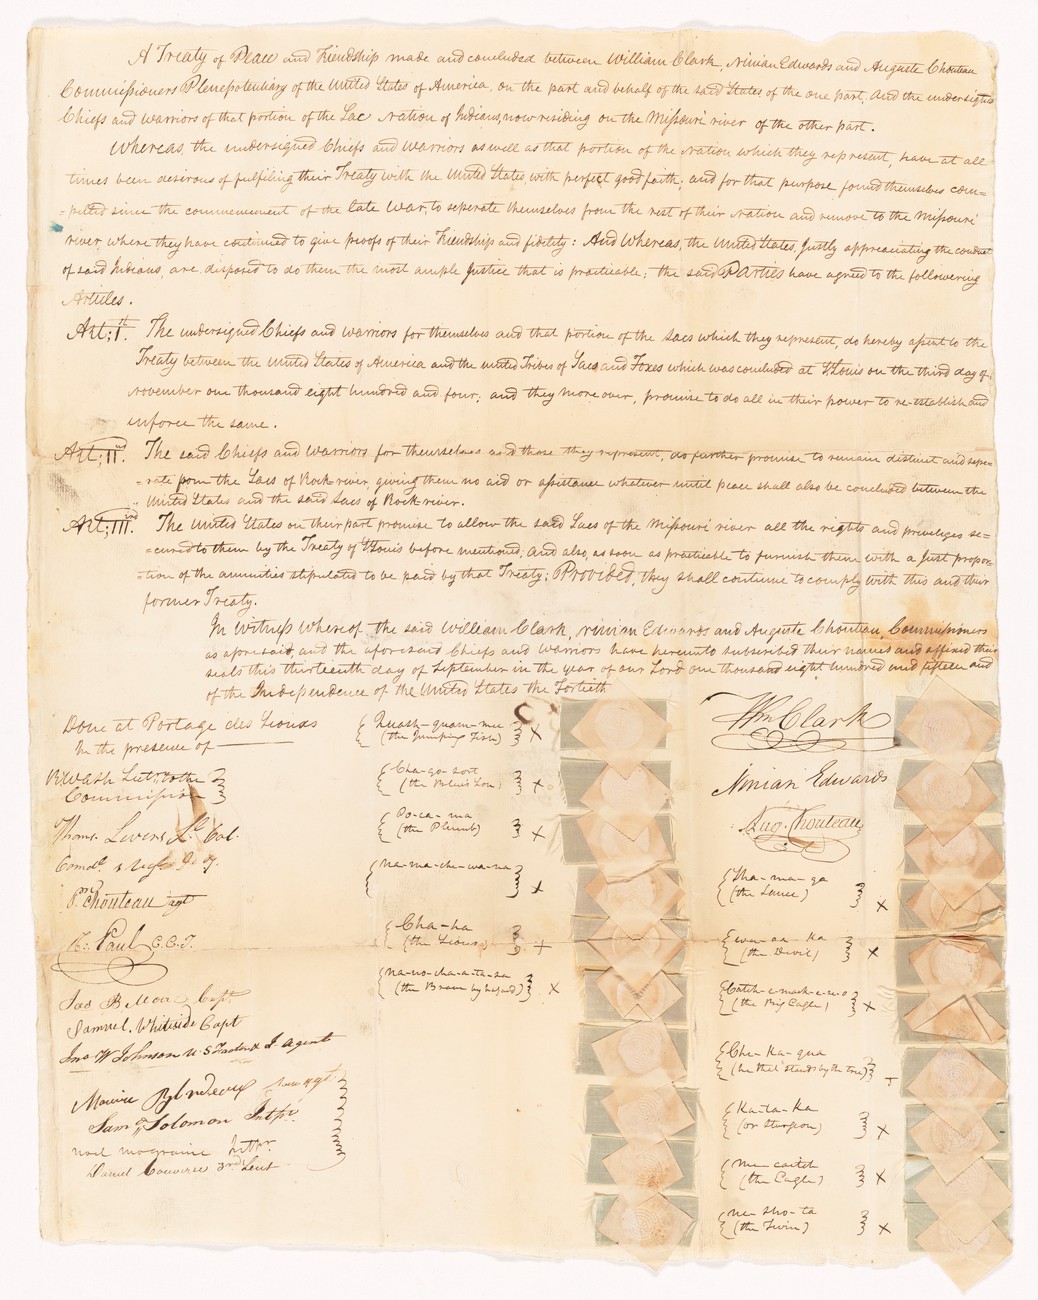 A Treaty of Peace and Friendship made and concluded between William Clark, Ninian Edwards and Auguste Chouteau
Commissioners Plenepotentiary of the United States of America, on the part and behalf of the said States, of the one part, And the undersigned
Chiefs and Warriors of that portion of the Sac Nation of Indians, now residing on the Missouri river of the other part.
Whereas, the undersigned Chiefs and Warriors as well as that portion of the Nation which they represent, have at all
times been desirous of fulfiling their Treaty with the United States, with perfect good faith; and for that purpose found themselves com=
=pelled since the commencement of the late War, to seperate themselves from the rest of their Nation and remove to the Missouri
river, where they have continued to give proofs of their Friendship and fidelity: And Whereas, the United States, justly appreciating the conduct
of said Indians, are disposed to do them the most ample Justice that is practicable; the said Parties have agreed to the followering
Articles.
Art; Ist. The undersigned Chiefs and Warriors for themselves and that portion of the Sacs which they represent, do hereby assent to the
Treaty between the United States of America and the united Tribes of Sacs and Foxes which was concluded at St Louis on the third day of
November one thousand eight hundred and four; and they more over, promise to do all in their power to re-establish and
inforce the same.
Art; IInd. The said Chiefs and Warriors for themselves and those they represent, do further promise to remain distinct and sepe=
=rate from the Sacs of Rock river, giving them no aid or assistance whatever until peace shall also be concluded between the
United States and the said Sacs of Rock river.
Art; III. The United States on their part promise to allow the said Sacs of the Missouri river all the rights and priveliges se=
=cured to them by the Treaty of St Louis before mentioned, and also, as soon as practicable to furnish them with a just propor=
=tion of the annuities stipulated to be paid by that Treaty; Provided, they shall continue to comply with this and their
former Treaty.
In Witness Whereof the said William Clark, Ninian Edwards and Auguste Chouteau, Commissioners
as aforesaid, and the aforesaid Chiefs and Warriors have hereunto subscribed their names and affixed their
seals this thirteenth day of September in the year of our Lord one thousand eight hundred and fifteen and
of the Independence of the United States the Fortieth
Done at Portage des Sioux
In the presence of
R. Wash Secty to the
Commission
Thoms. Levens Lt. Col.
Comdt.
P. Chouteau agt
T: Paul C.C.T.
Jas B Moore Capt
Samuel Whiteside Capt
Jno W Johnson U.S Factor & I. Agent
Maurice Blondeaux
Saml Solomon Intpr
noel mograine Intpr.
Daniel Converse 3rd Lieut
Quash-quam-me
(the Jumping Fish) X
Cha-go-sort
(the Blew's Son) X
Po-ca-ma
(the Plumb) X
Na-ma-che-wa-na X
Cha-ha
(the Sioux) X
Na-no-cha-a-ta-sa
(the Brave by hazard) X
Wm Clark
Ninian Edwards
Aug. Chouteau
Sha-ma-ga
(the Lance) X
(the Devil) X
Catch-e-mack-e-seo
(the Big Eagle) X
Che-Ka-qua
(he that stands by the tree)
Ka-ta-Ka
(or Sturgeon) X
Me-caitch
(the Eagle) X
Ne-sho-ta
(the Twin) X